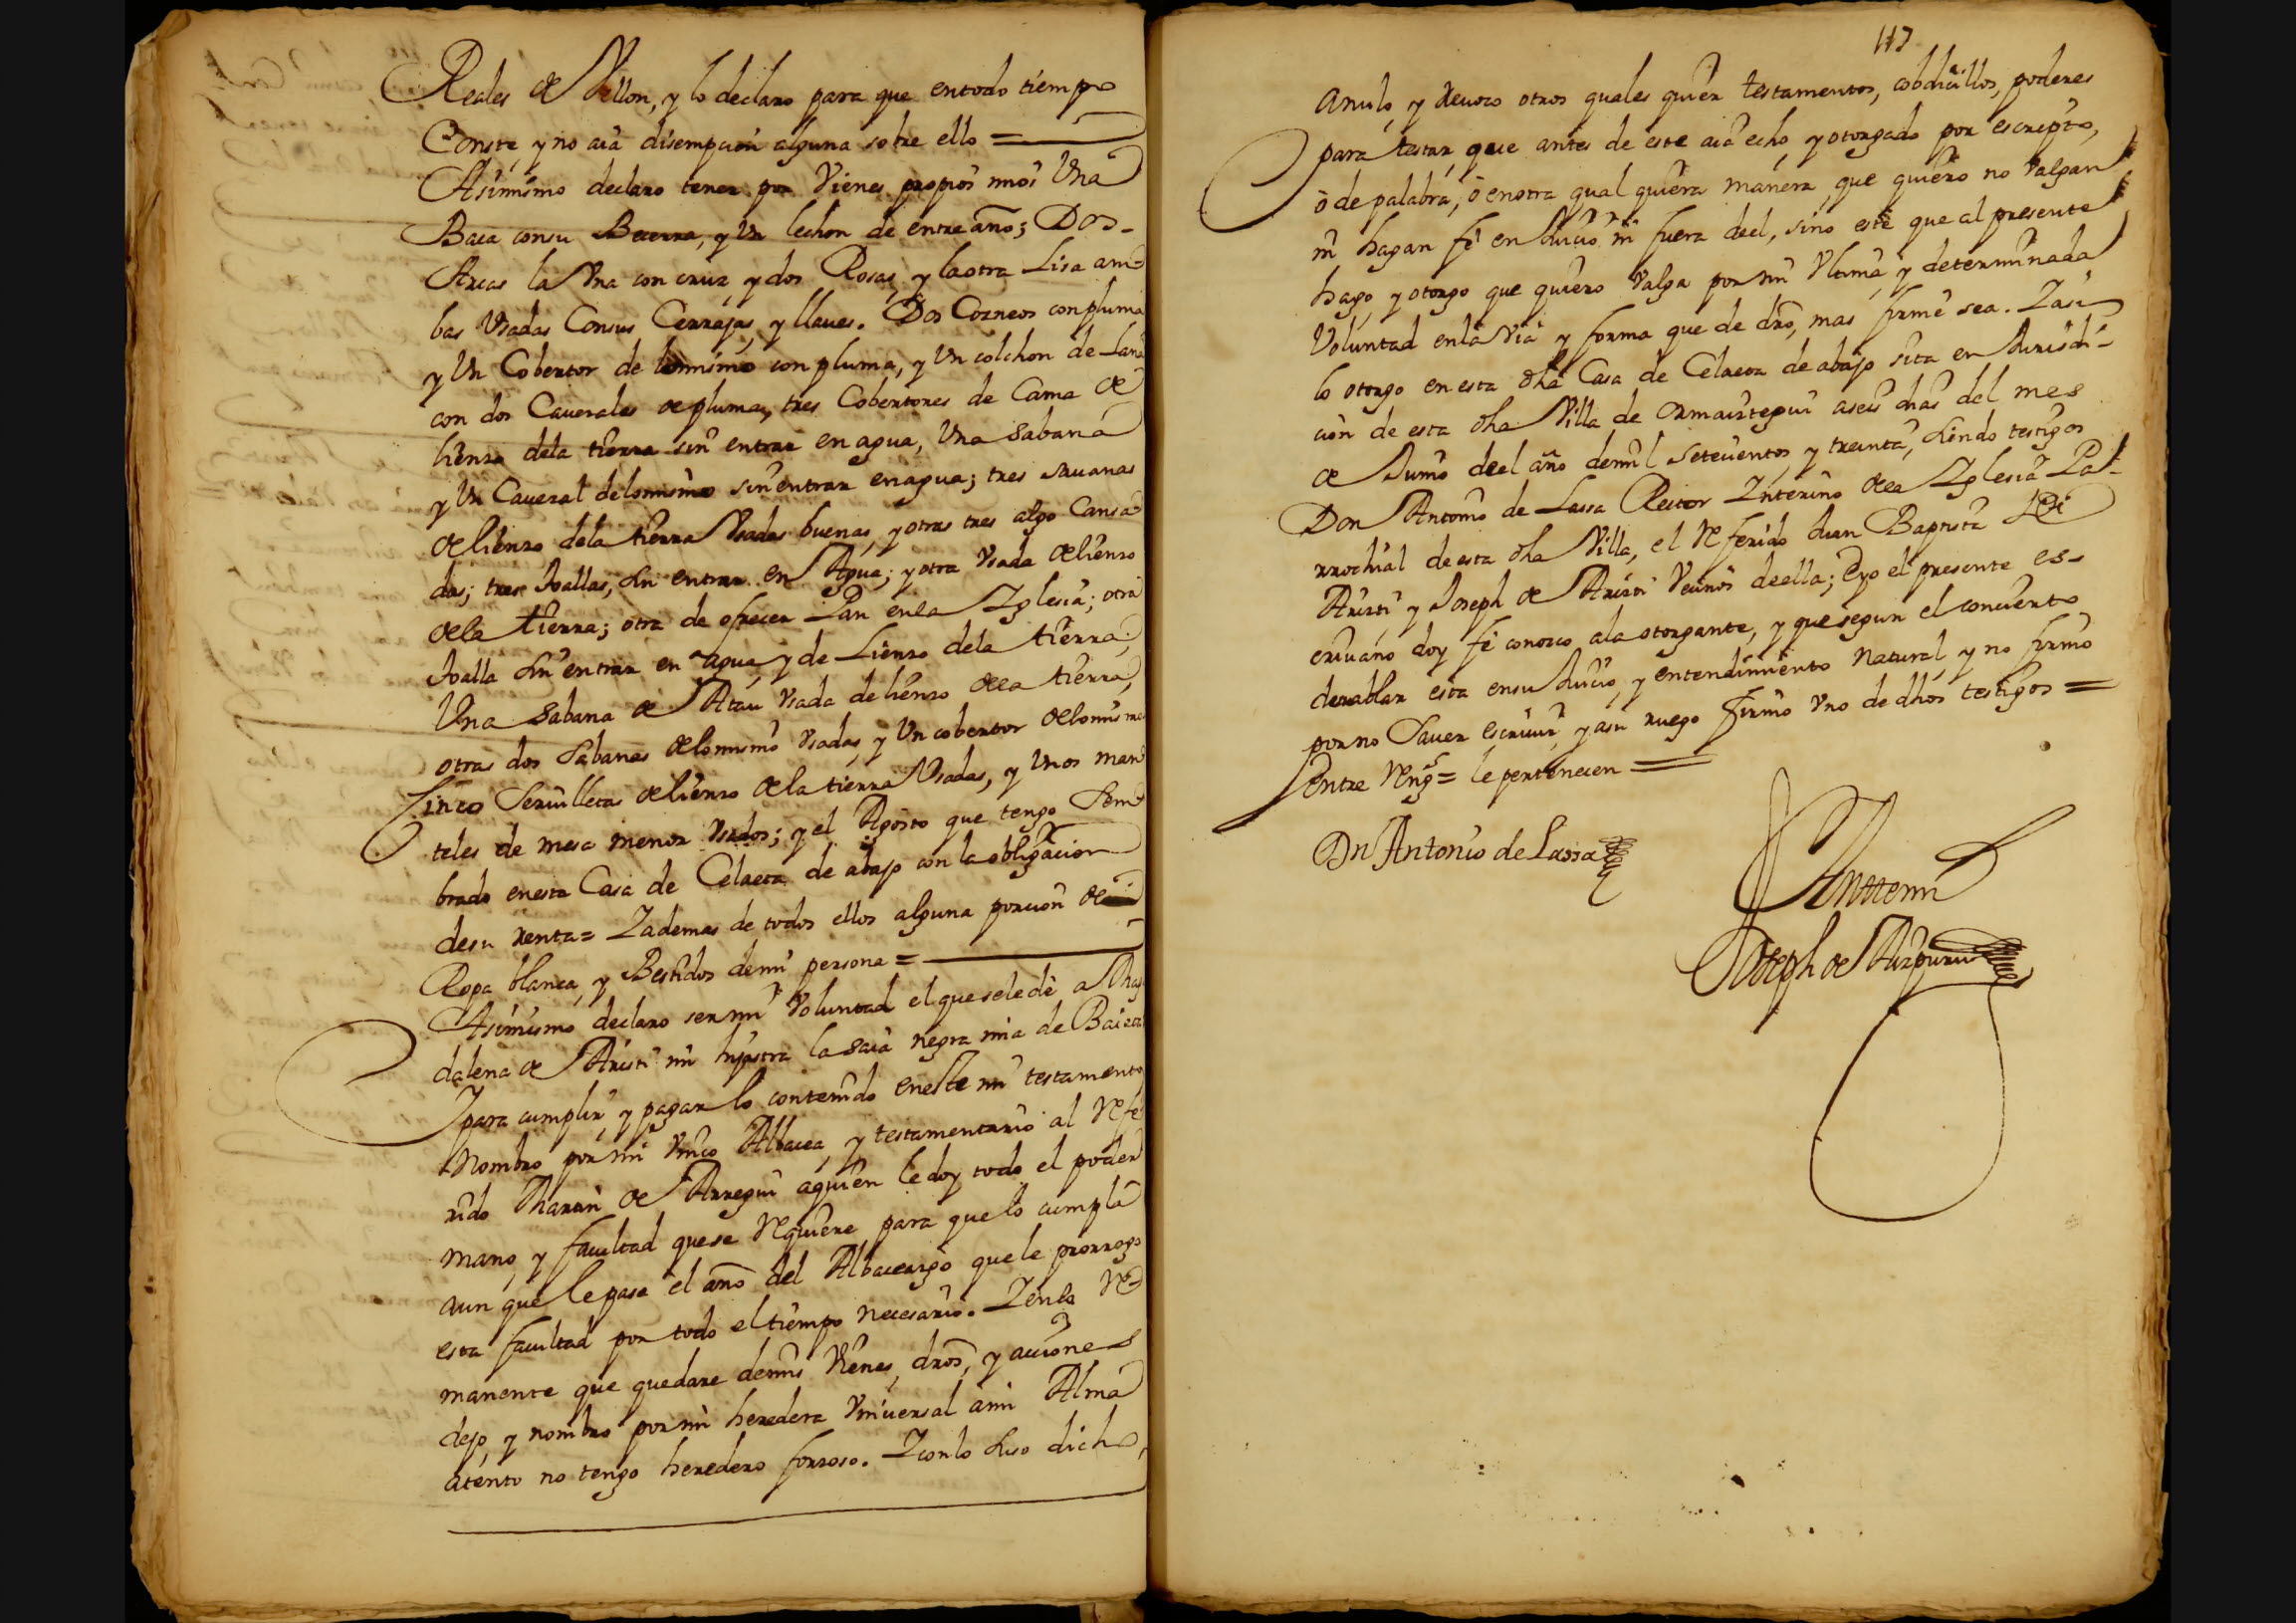 Reales de Vellon, y lo declaro para que entodo tiempo
Conste, y no aia disempcion alguna sobre ello =
Asimismo declaro tener por Vienes propios mios Una
Baca consu Becerra, y Un lechon de entre año; Dos
Arcas la Una con cruz y dos Rosas, y la otra Lisa am=
bas Usadas Consus Cerrajas, y llaues. Dos Cozneos con pluma
y Un Cobertor de lomismo con pluma, y Un colchon de Lana
con dos Cauezales de pluma, tres Cobertores de Cama de
lienzo dela tierra sin entrar en agua, Una Sabana
y Un Caueral delomismo sin entrar en agua; tres Sauanas
de lienzo dela tierra Usadas buenas, y otras tres algo Cansa=
das; tres toallas, sin entrar en Agua; y otra Usada de lienzo
dela tierra; otra de ofrecer Pan en la Iglesia; otra
toalla sin entrar en agua, y de Lienzo dela tierra;
Una Sabana de Atau Usada de lienzo dela tierra,
otras dos Sabanas delomismo Usadas, y Un cobertor delomismo
Cinco Seruilletas de lienzo dela tierra Usadas, y Unos man=
teles de mesa menor Usados; y el Agosto que tengo Sem=
brado en esta Casa de Celaeta de abajo con la obligacion
desu renta = Y ademas de todos ellos alguna porcion de
Ropa blanca, y Bestidos demi persona =
Asimismo declaro ser mi Voluntad el que sele dè a Mag
dalena de Aristi mi hijastra la saia negra mia de Baieta
Y para cumplir, y pagar lo contenido eneste mi testamento
Nombro por mi Unico Albacea, y testamentario al Refe
rido Martin de Arregui aquien le doy todo el poder
mano, y facultad quese Requiere, para que lo cumpla
aun que se pase el año del Albaceazgo que le prorrogo
esta facultad por todo el tiempo necesario. Y en lo Re=
manente que quedare demis Vienes, dros, y acciones
dejo, y nombro por mi heredera Vniuersal àmi Alma
atento no tengo heredero forzoso. Y con lo suso dicho,
117
anulo, y reuoco otros quales quier testamentos, cobdicillos, poderes
para testar, que antes de este aia echo, y otorgado por escripto,
ò de palabra, ò enotra qual quiera manera, que quiero no Valgan
ni hagan fé en Juicio, ni fuera deel, sino este que al presente
hago, y otorgo que quiero Valga por mi Vltima, y determinada
Voluntad enla Via y forma que de dro, mas firme sea. Y asi
lo otorgo en esta dha Casa de Celaeta de abajo sita en Jurisdi=
cion de esta dha Villa de Ormaiztegui aseis dias del mes
de Junio deel año demil Setecientos y treinta, siendo testigos
Don Antonio de Lassa Rector Ynterino dela Iglesia Pa=
rrochial de esta dha Villa, el Referido Juan Baptista de
Aristi y Joseph de Aristi Vecinos deella; E yo el presente es=
criuano doy fé conozco ala otorgante, y que segun el concierto
desu hablar esta ensu Juicio, y entendimiento Natural, y no firmò
por no Sauer escriuir, y asu ruego firmò uno de dhos testigos =
Entre Rengs = le pertenecen =
Dn Antonio de Lassa
Antemi
Joseph de Aizpuru